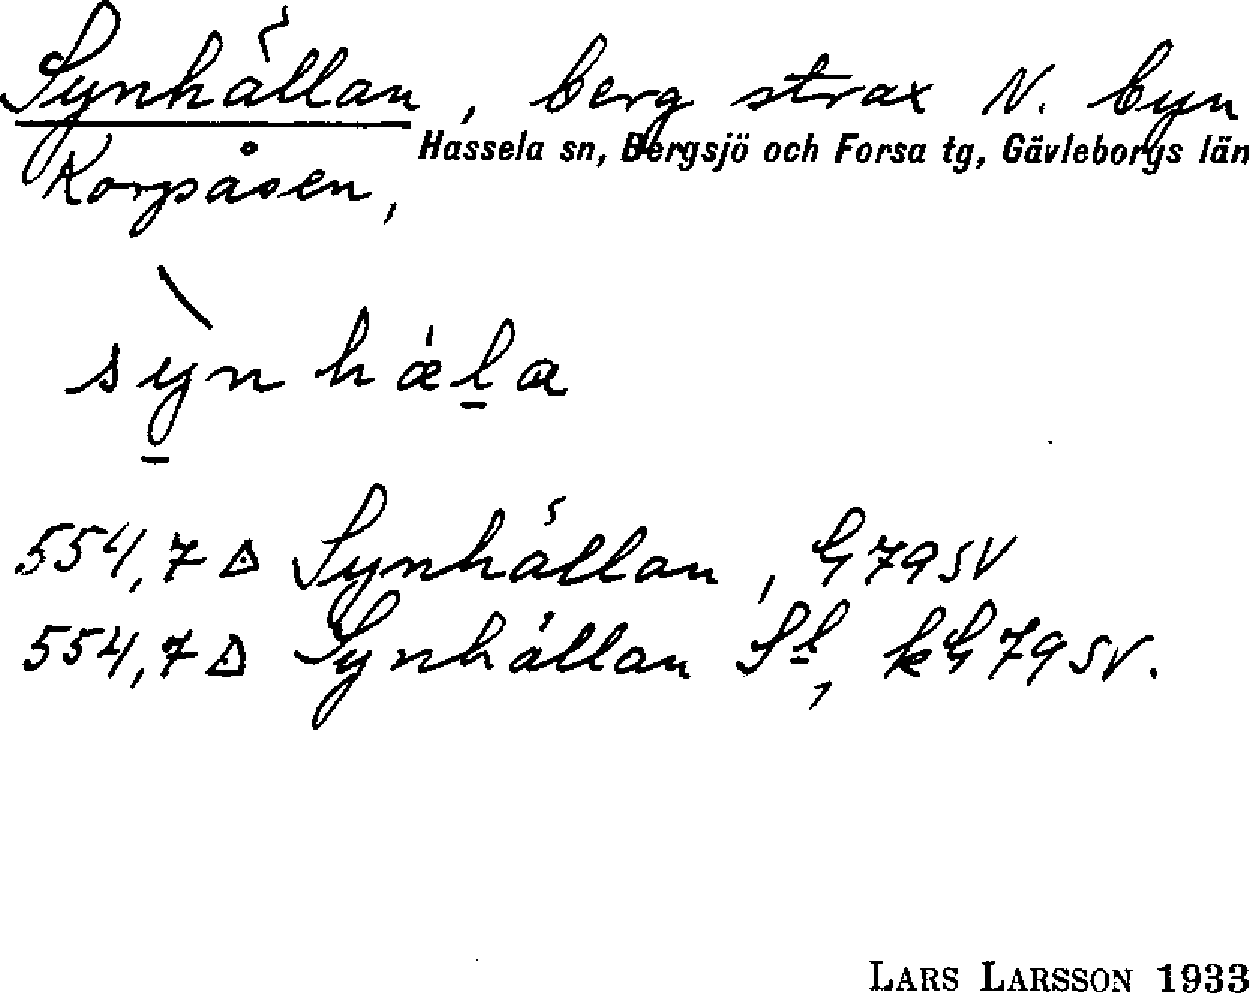 Synhällan, berg strax N. byn
Hassela sn, Bergsjö och Forsa tg, Gävleborgs län
Korpåsen,
sỳ̠n hǽl̠a
554,7 △ Synhällan, G79SV
554,7 △ Synhällan Sl, kG79SV.
LARS LARSSON 1933